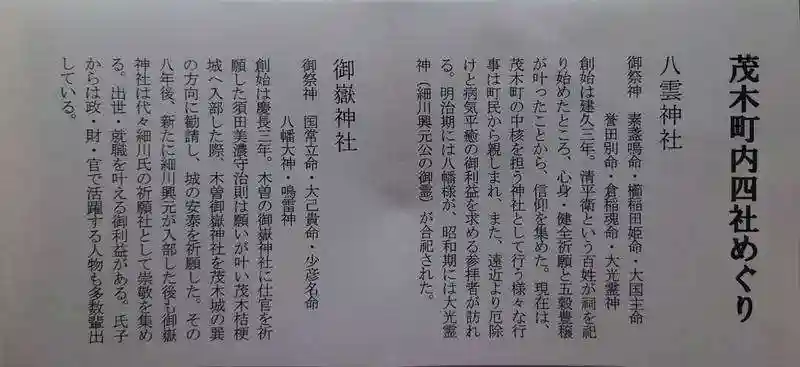 茂木町内四社めぐり
八雲神社
御祭神　素盞鳴命・櫛稲田姫命・大国主命
誉田別命・倉稲魂命・大光霊神
創始は建久三年。清平衛という百姓が祠を祀
り始めたところ、心身・健全祈願と五穀豊穣
が叶ったことから、信仰を集めた。現在は、
茂木町の中核を担う神社として行う様々な行
事は町民から親しまれ、また、遠近より厄除
けと病気平癒の御利益を求める参拝者が訪れ
る。明治期には八幡様が、昭和期には大光霊
神（細川興元公の御霊）が合祀された。
御嶽神社
御祭神　国常立命・大己貴命・少彦名命
八幡大神・鳴雷神
創始は慶長三年。木曽の御嶽神社に仕官を祈
願した須田美濃守治則は願いが叶い茂木桔梗
城へ入部した際、木曽御嶽神社を茂木城の巽
の方向に勧請し、城の安泰を祈願した。その
八年後、新たに細川興元が入部した後も御嶽
神社は代々細川氏の祈願社として崇敬を集め
る。出世・就職を叶える御利益がある。氏子
からは政・財・官で活躍する人物も多数輩出
している。